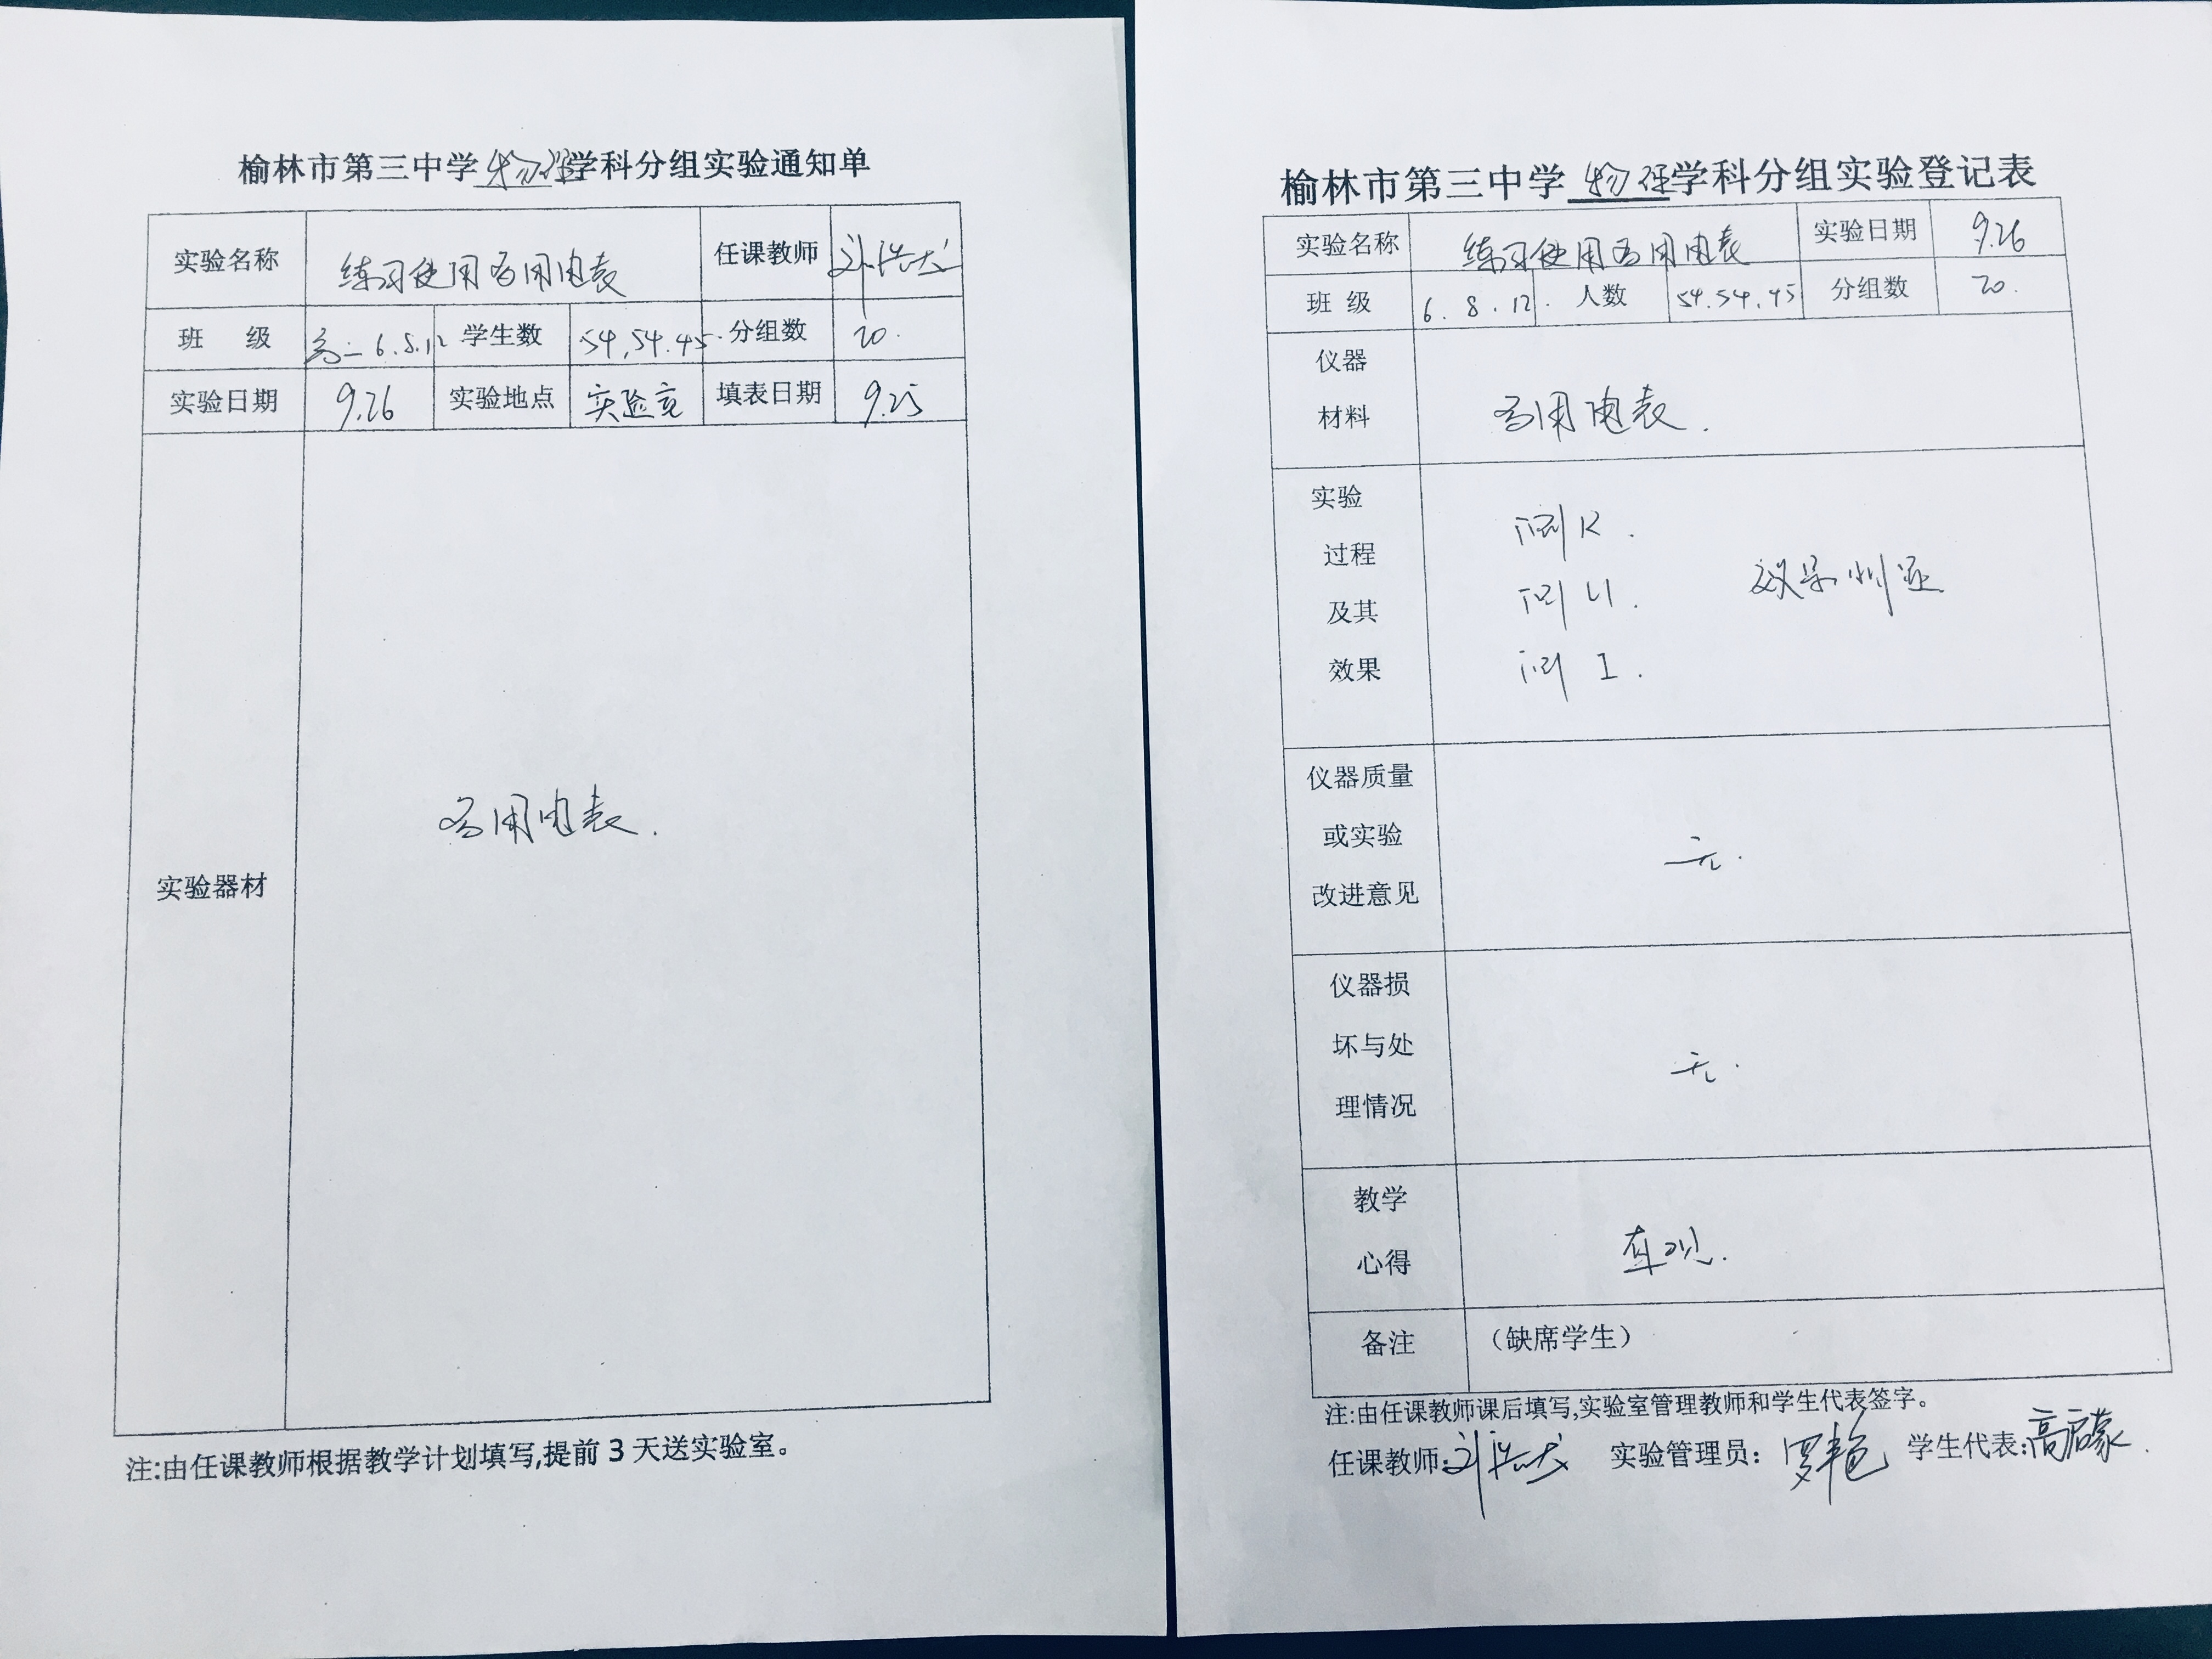 榆林市第三中学物理学科分组实验通知单
实验名称 练习使用多用电表 任课教师
班 级 高二 6.8.12 学生数 54.54.45. 分组数 20.
实验日期 9.26 实验地点 实验室 填表日期 9.25
实验器材 多用电表.
注:由任课教师根据教学计划填写,提前 3 天送实验室。
榆林市第三中学物理学科分组实验登记表
实验名称 练习使用多用电表 实验日期 9.26
班 级 6.8.12. 人数 54.54.45 分组数 20.
仪器
材料
多用电表.
实验
过程
及其
效果
测 R.
测 U.
测 I.
效果明显
仪器质量
或实验
改进意见
无.
仪器损
坏与处
理情况
无.
教学
心得
直观.
备注 （缺席学生）
注:由任课教师课后填写,实验室管理教师和学生代表签字。
任课教师: 实验管理员： 罗艳 学生代表:高启蒙.